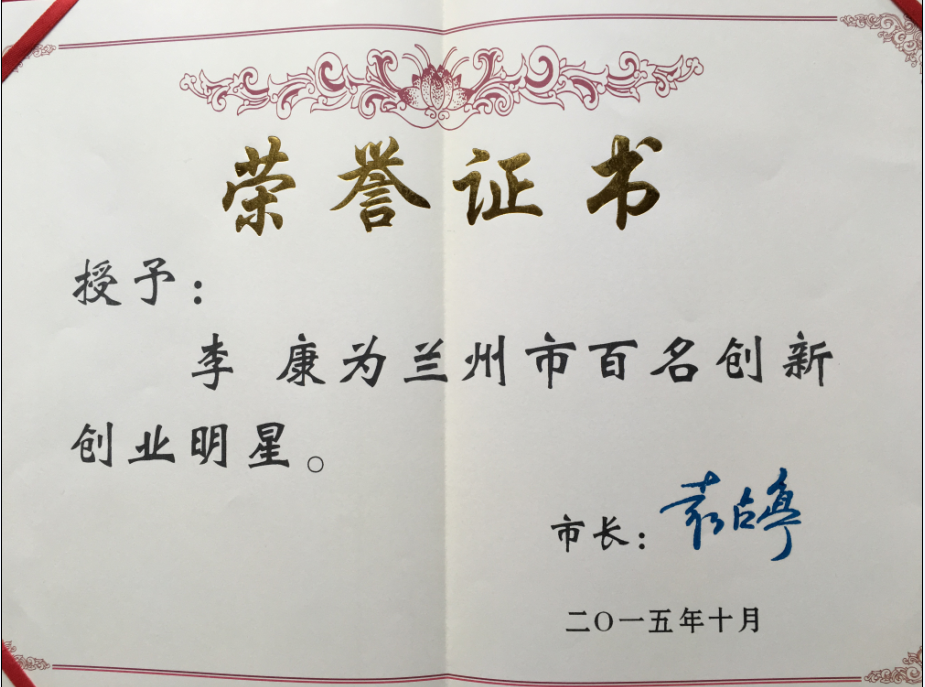 荣誉证书
授予：
李 康为兰州市百名创新
创业明星。
市长：袁占亭
二〇一五年十月